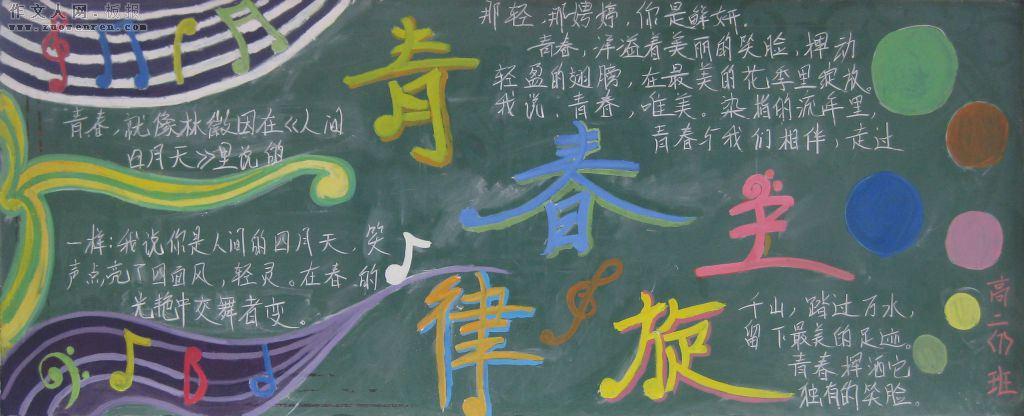 作文人网·板报
www.zuowenren.com
青春主旋律
青春,就像林徽因在《人间
四月天》里说的
一样:我说你是人间的四月天,笑
声点亮了四面风,轻灵。在春的
光艳中交舞者变。
那轻,那娉婷,你是鲜妍。
青春,洋溢着美丽的笑脸,挥动
轻盈的翅膀,在最美的花季里绽放。
我说,青春,唯美。染指的流年里,
青春与我们相伴,走过
千山,踏过万水,
留下最美的足迹。
青春挥洒它
独有的笑脸。
高二班